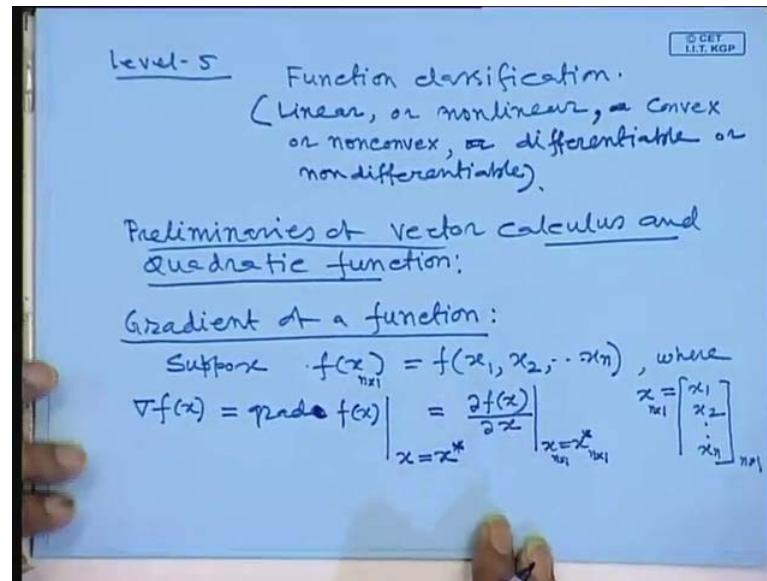 © CET
I.I.T. KGP
Level-5
Function classification.
(Linear, or nonlinear, convex
or nonconvex, or differentiable or
nondifferentiable).
Preliminaries of vector calculus and
Quadratic function:
Gradient of a function:
Suppose f(x)_{n×1} = f(x₁, x₂, ·· xn), where
∇f(x) = grad f(x) |_{x=x*} = ∂f(x)/∂x |_{x_{n×1}=x*_{n×1}} x_{n×1} = [x₁ x₂ : xn]_{n×1}